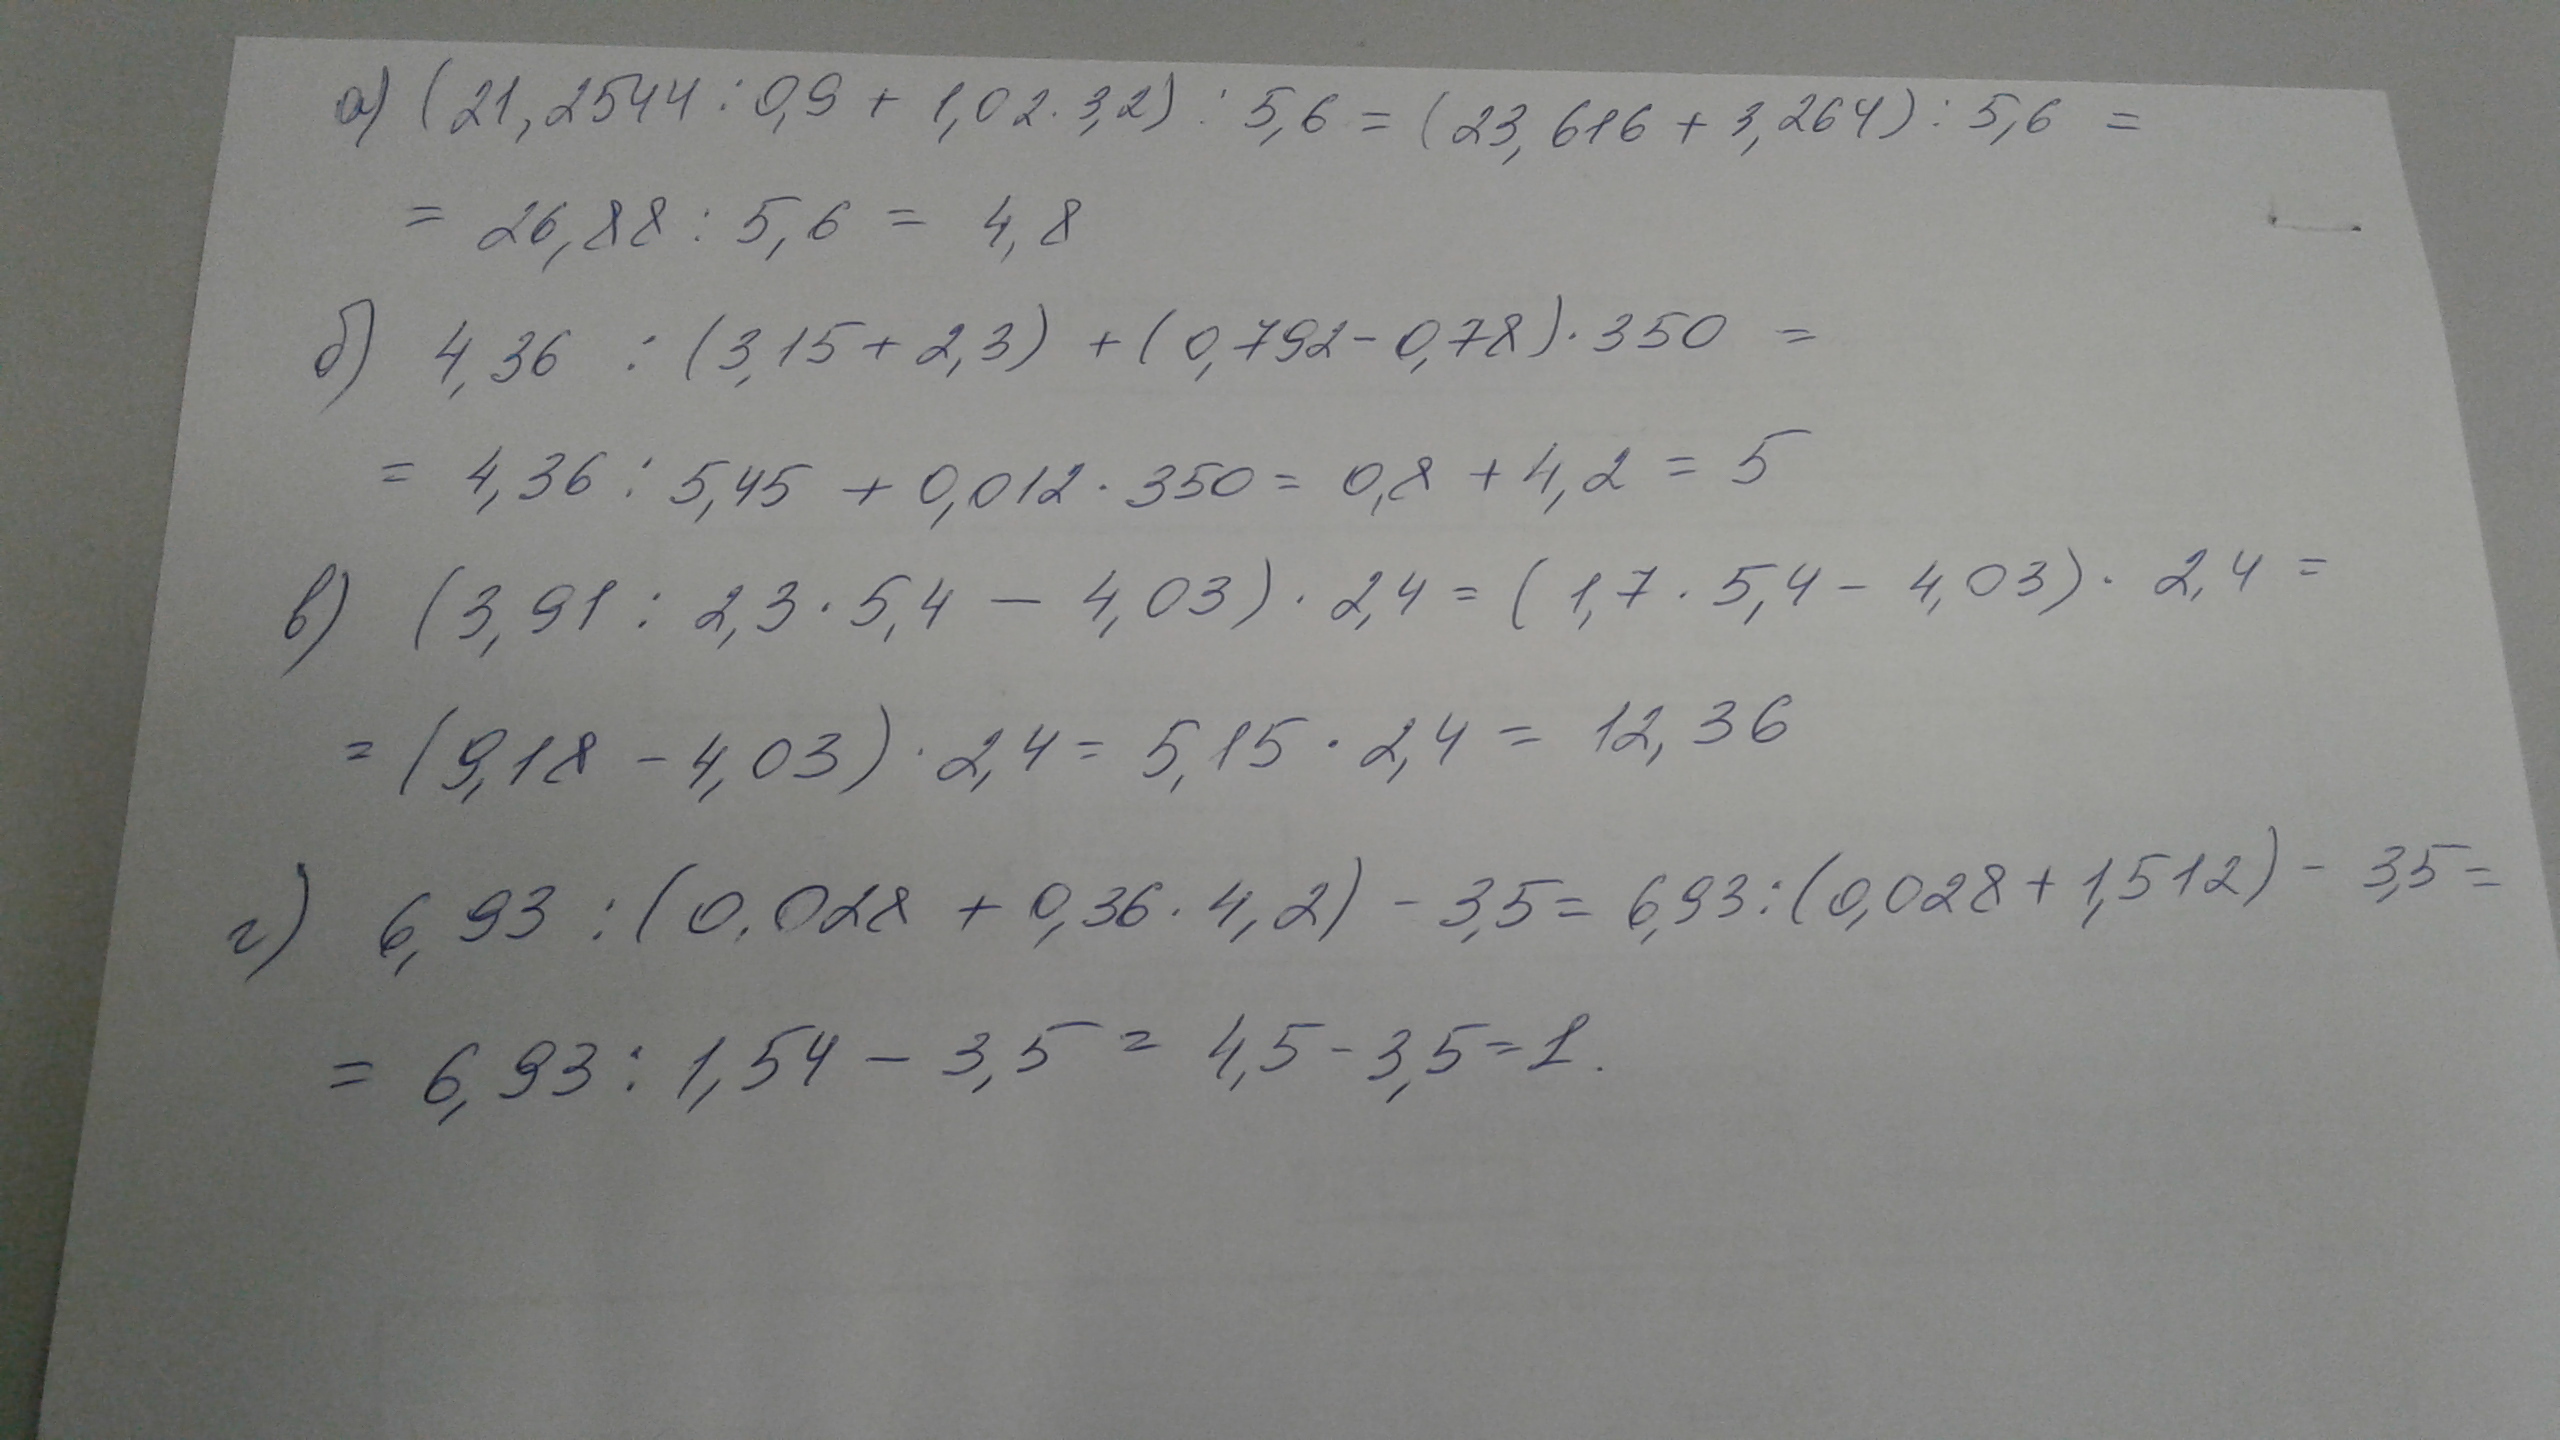 а) (21,2544 : 0,9 + 1,02 · 3,2) : 5,6 = (23,616 + 3,264) : 5,6 =
= 26,88 : 5,6 = 4,8
б) 4,36 : (3,15 + 2,3) + (0,792 - 0,78) · 350 =
= 4,36 : 5,45 + 0,012 · 350 = 0,8 + 4,2 = 5
в) (3,91 : 2,3 · 5,4 - 4,03) · 2,4 = (1,7 · 5,4 - 4,03) · 2,4 =
= (9,18 - 4,03) · 2,4 = 5,15 · 2,4 = 12,36
г) 6,93 : (0,028 + 0,36 · 4,2) - 3,5 = 6,93 : (0,028 + 1,512) - 3,5 =
= 6,93 : 1,54 - 3,5 = 4,5 - 3,5 = 1.